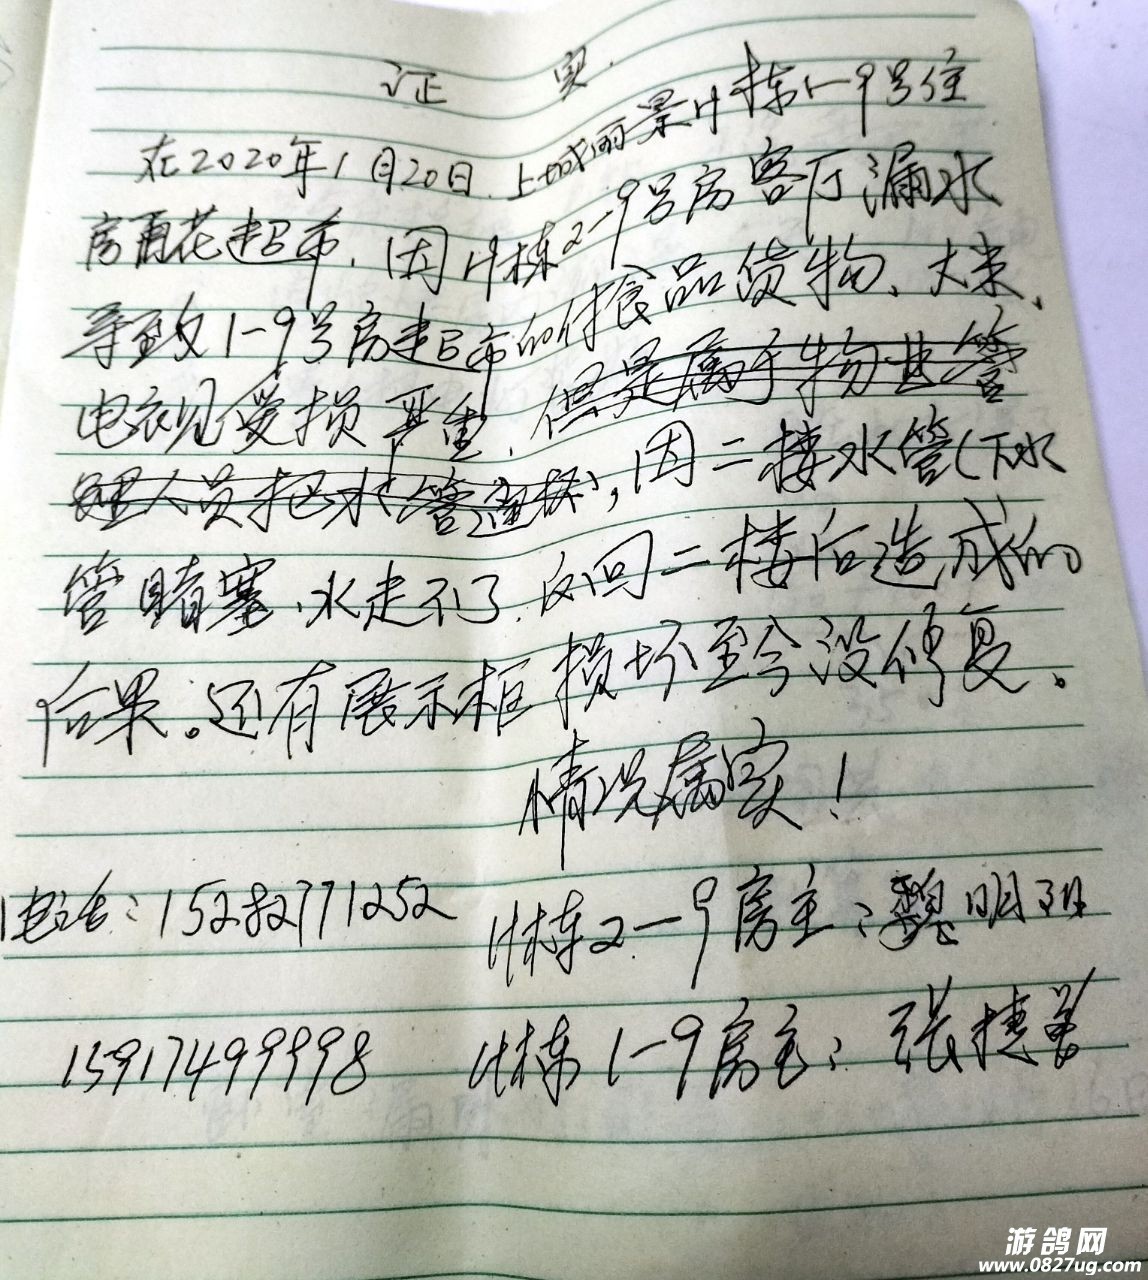 证 实
在2020年1月20日.上城丽景H栋1-9号住
房雨花超市.因H栋2-9号房客厅漏水
导致1-9号房超市的付食品货物、大米、
电视受损严重.但是属于物业管
理人员把水管,因二楼水管(下水
管赌塞、水走不了.反回二楼后造成的
后果。还有展示柜损坏至今没修复。
情况属实!
电话:15282771252 H栋2-9房主:魏明
15917499998 H栋1-9房主:张捷
游鸽网
www.0827ug.com